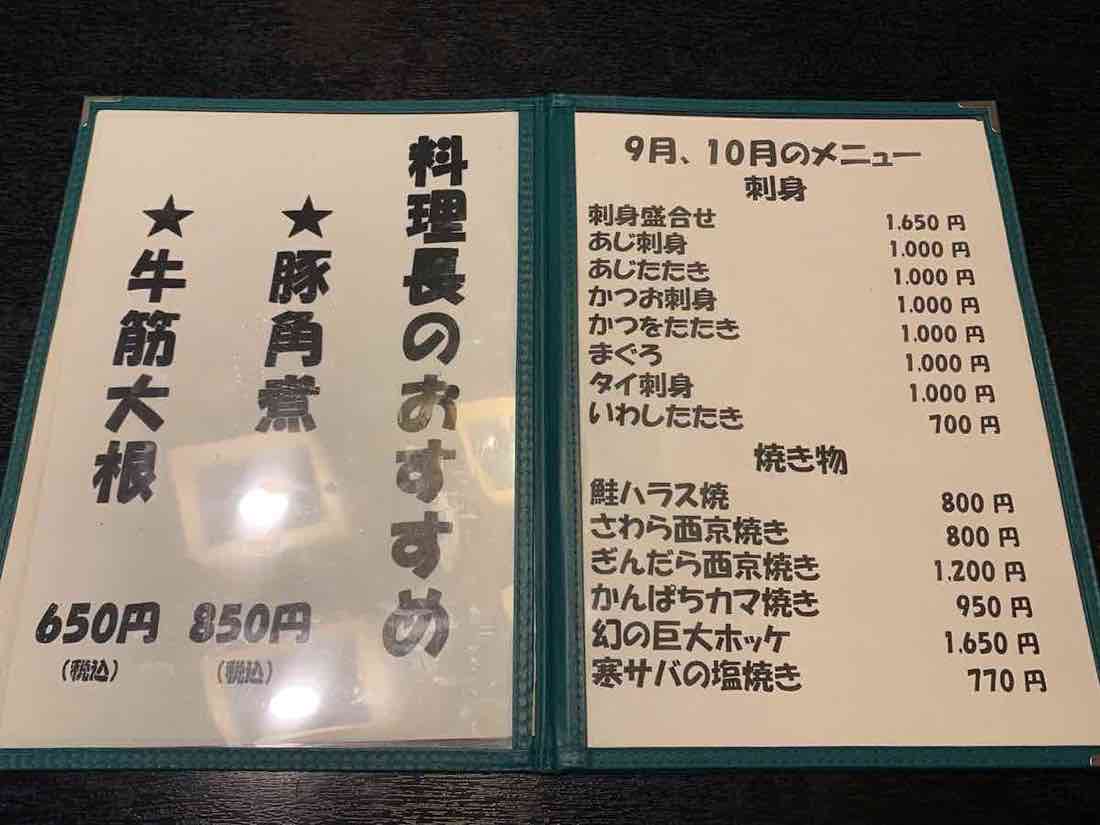 料理長のおすすめ
★豚角煮
850円
(税込)
★牛筋大根
650円
(税込)
9月、10月のメニュー
刺身
刺身盛合せ 1.650 円
あじ刺身 1.000 円
あじたたき 1.000 円
かつお刺身 1.000 円
かつをたたき 1.000 円
まぐろ 1.000 円
タイ刺身 1.000 円
いわしたたき 700 円
焼き物
鮭ハラス焼 800 円
さわら西京焼き 800 円
ぎんだら西京焼き 1.200 円
かんぱちカマ焼き 950 円
幻の巨大ホッケ 1.650 円
寒サバの塩焼き 770 円